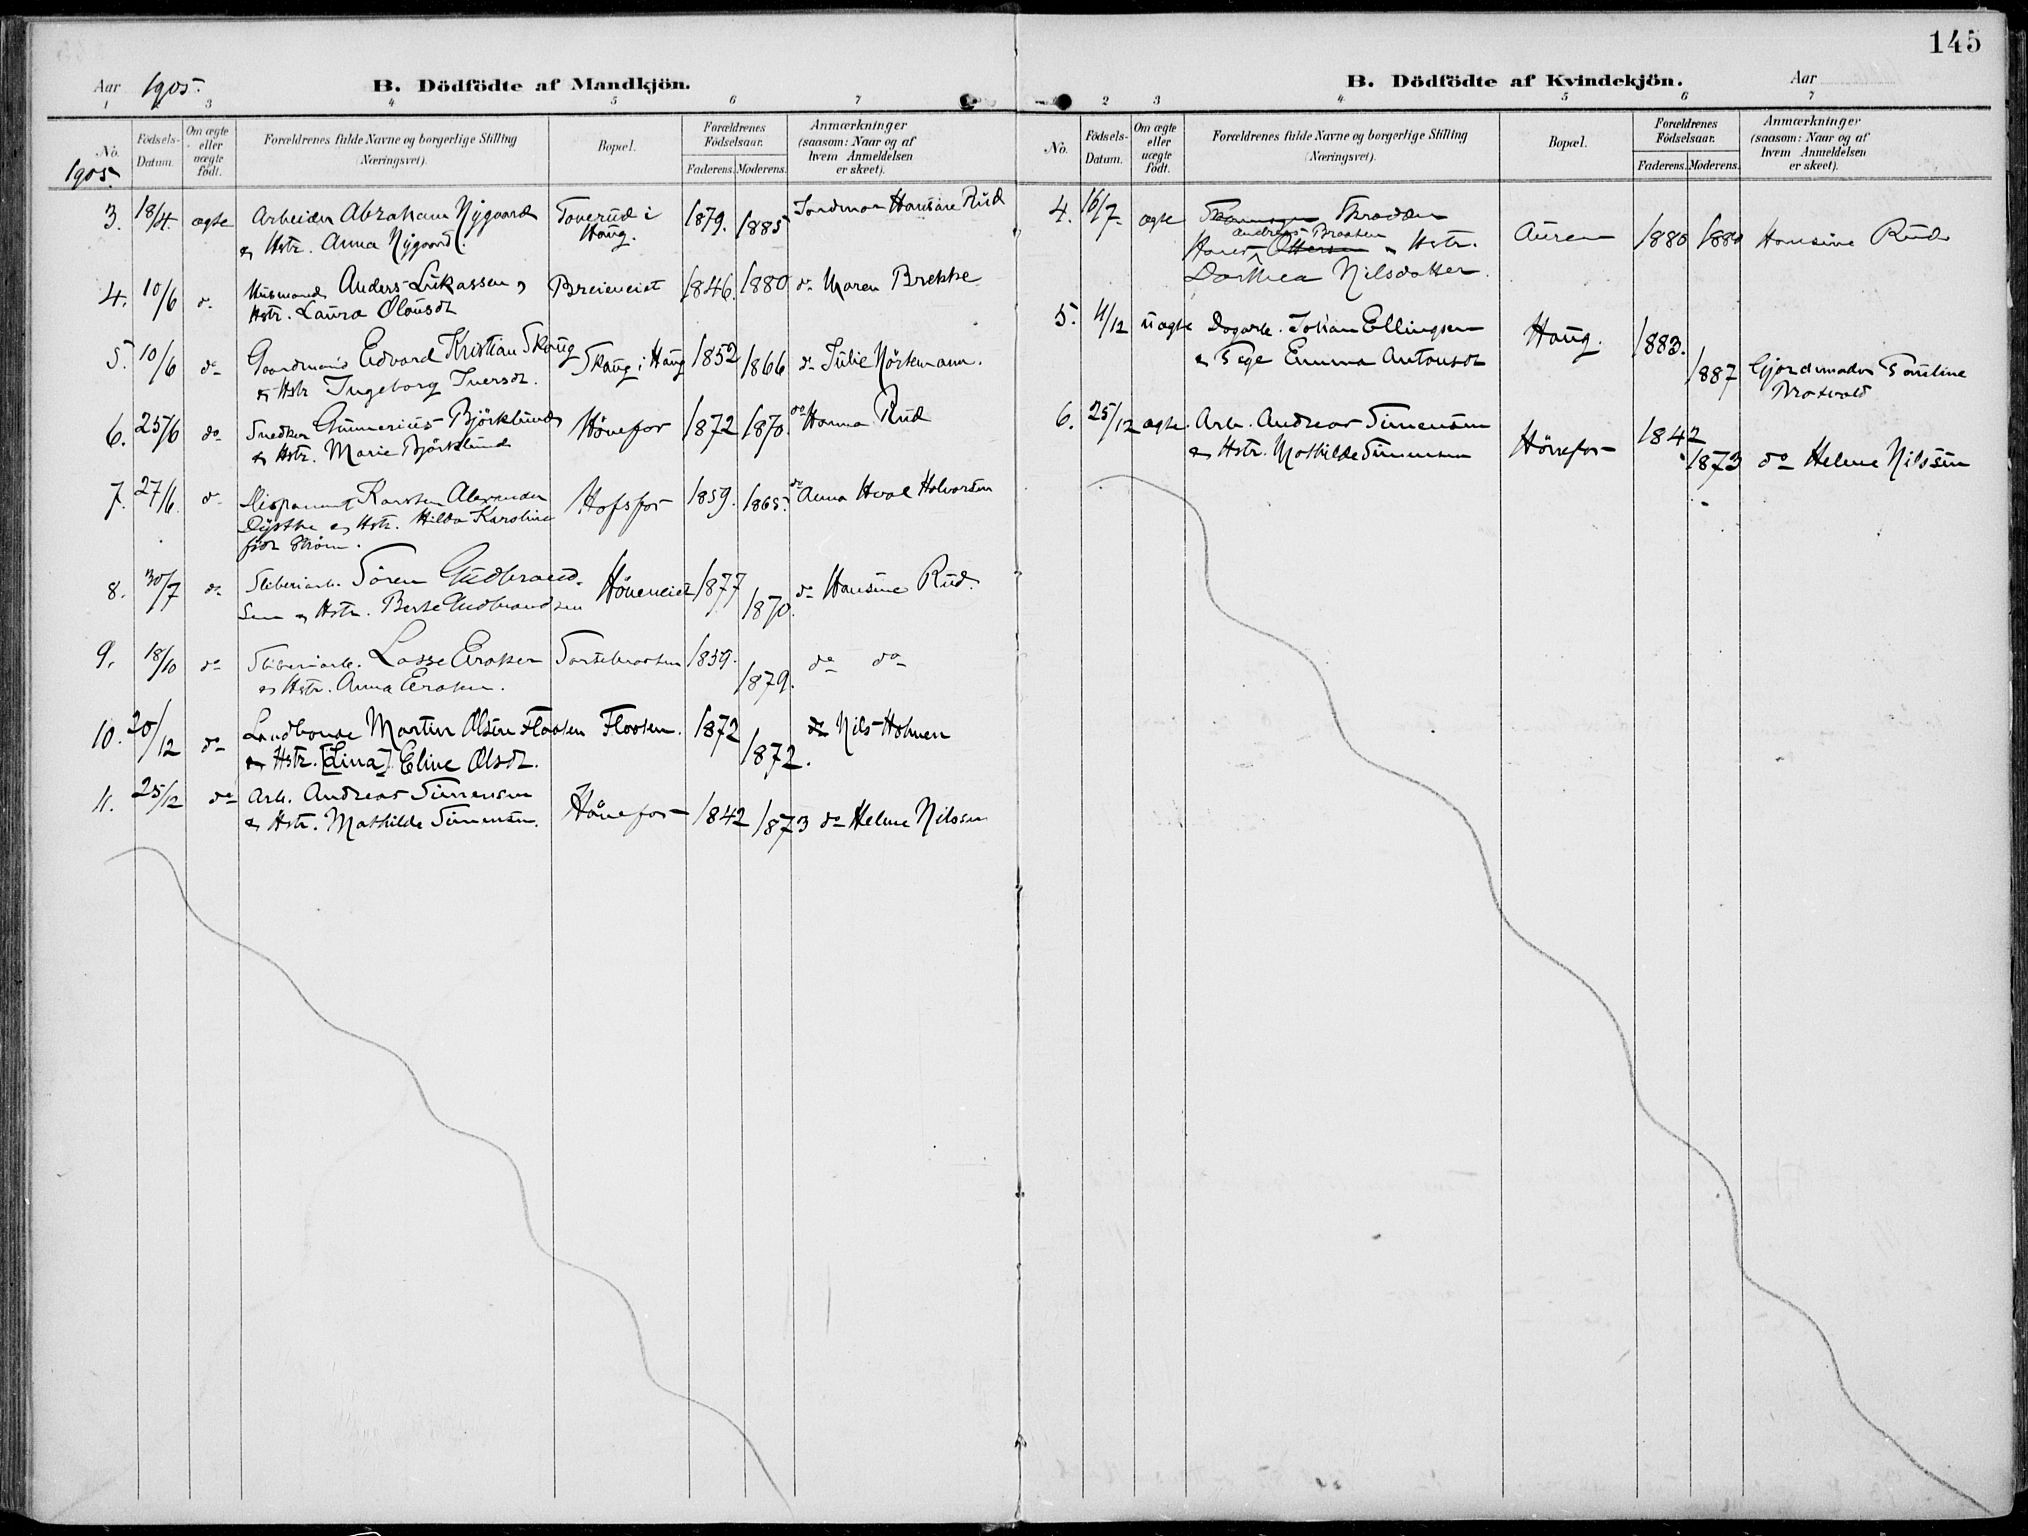 145
Aar 1905. B. Dödfödte af Mandkjön.
1 3 4 5 6 7
No. Födsels-Datum. Om ægte eller uægte födt. Forældrenes fulde Navne og borgerlige Stilling (Næringsvei). Bopæl. Forældrenes Födselsaar. Faderens. Moderens. Anmærkninger (saasom: Naar og af hvem Anmeldelsen er skeet).
1905.
3. 18/4. ægte Arbeider Abraham Nygaard Toverud i 1879. 1885 Jordmor Hansine Rud
og Hstr. Anna Nygaard. Haug.
4. 10/6 do Husmand Anders Lukassen og Breieneiet 1846. 1880 do Maren Brekke
Hstr. Laura Olausdt
5. 10/6 do Gaardmand Edvard Kristian Skaug Skaug i Haug 1852 1866 do Julie
og Hstr Ingeborg Iversdt.
6. 25/6 do Snedker Gunnerius Björklund Hönefos 1872 1870. do Hanna Rud
og Hstr. Marie Björklund
7. 27/6. do Karsten Alexander Hofsfos 1859. 1865. do Anna Hval Halvorsen
og Hstr. Hilda Karoline
født Strøm.
8. 30/7 do Sliberiarb. Sören Gudbrand- Höneneiet 1877 1870. do Hansine Rud.
sen og Hstr. Berte Gudbrandsen
9. 18/10 do Sliberiarb. Lasse Eraker 1859. 1879. do do
og Hstr. Anna Eraker.
10. 20/12 do Landbonde Martin Olsen Flaaten Flaaten. 1872 1872. do Nils Holmen
og Hstr. [Lina] Eline Olsdt.
11. 25/12 do Arb. Andreas Simensen Hönefos 1842 1873 do Helene Nilssen
og Hstr. Mathilde Simensen.
B. Dödfödte af Kvindekjön. Aar
2 3 4 5 6 7
No. Födsels-Datum. Om ægte eller uægte födt. Forældrenes fulde Navne og borgerlige Stilling (Næringsvei). Bopæl. Forældrenes Födselsaar. Faderens. Moderens. Anmærkninger (saasom: Naar og af hvem Anmeldelsen er skeet).
4. 16/7 ægte Skrædder
Andreas Braaten
Hans Ottersen og Hstr. Auren 1880 1880 Hansine Rud
Dorthea Nilsdatter.
5. 4/12 uægte Dagarb. Johan Ellingsen Haug. 1883.
og Pige Emma Antonsdt 1887 Gjordemoder Pauline
6. 25/12 ægte. Arb. Andreas Simensen Hönefos 1842
og Hstr. Mathilde Simensen 1873 do Helene Nilssen